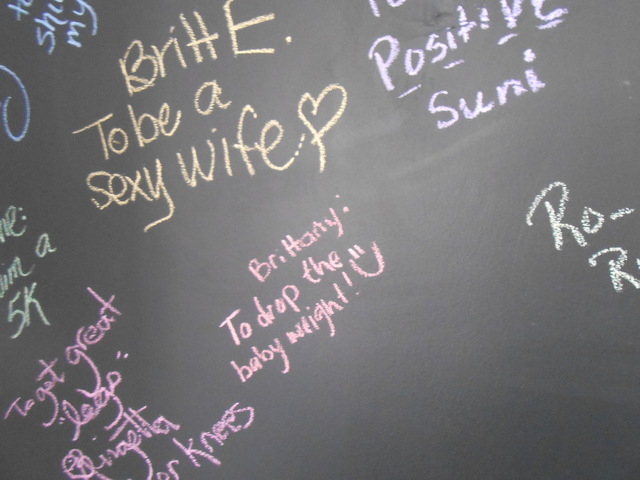 Britt E.
To be a
sexy wife
Positive
Sumi
Brittany:
To drop the
baby weight!
Ro-
5K
To get great
legs
knees